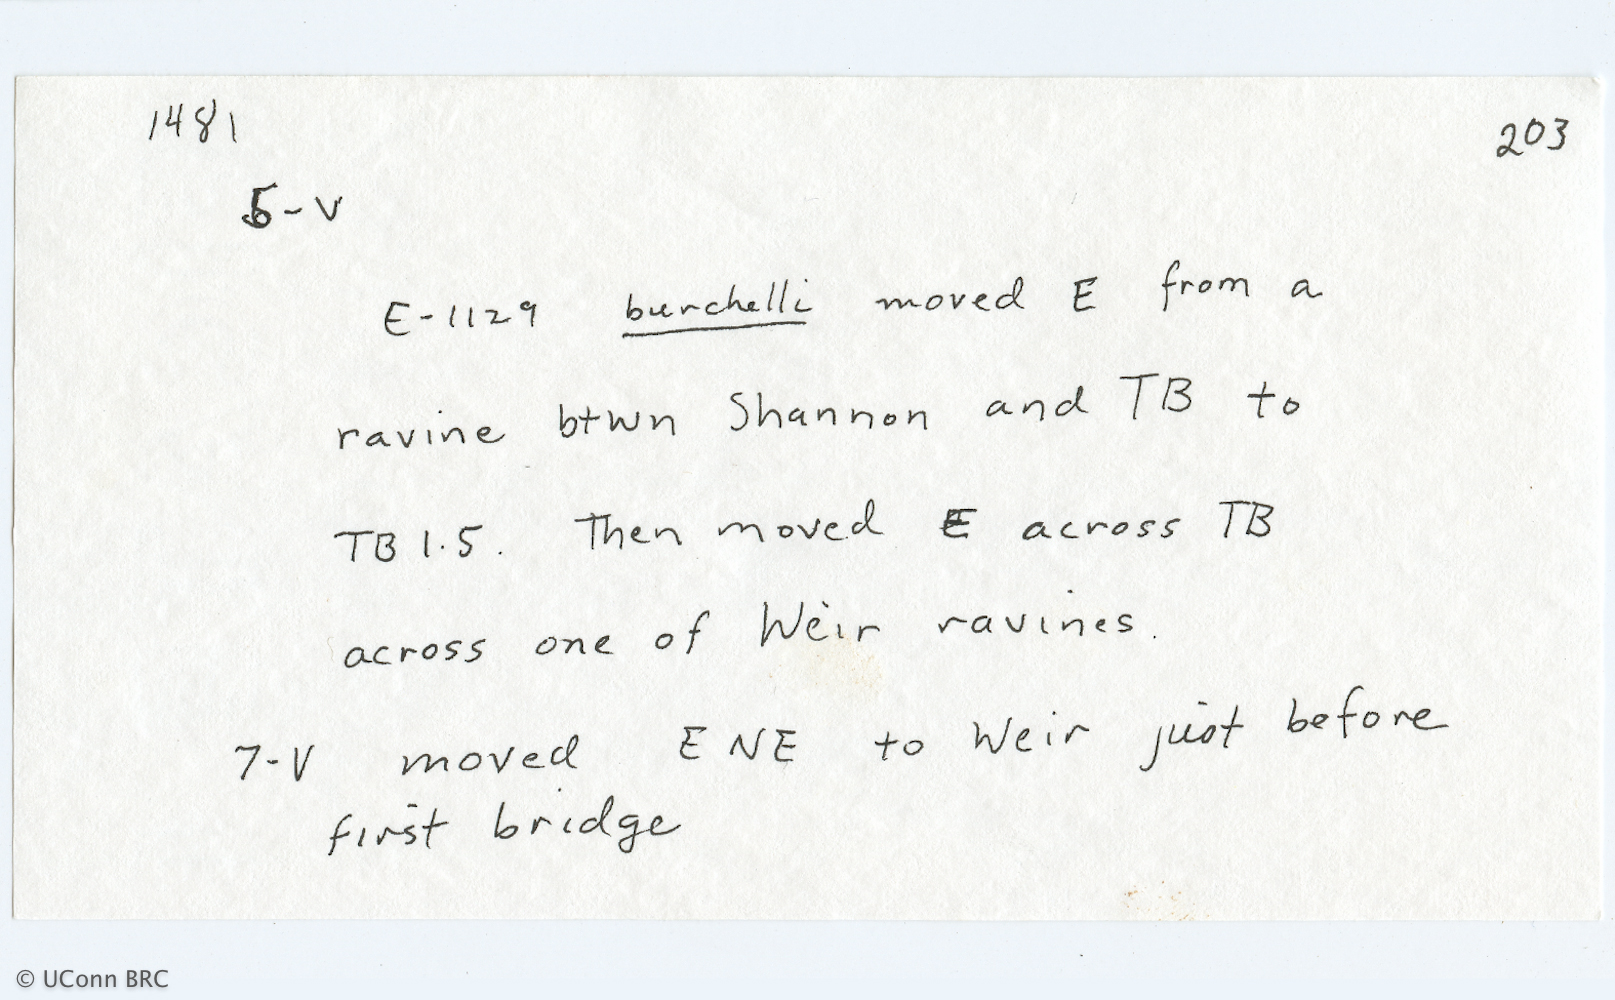 1481
203
5-V
E-1129 burchelli moved E from a
ravine btwn Shannon and TB to
TB 1.5. Then moved E across TB
across one of Weir ravines.
7-V moved ENE to Weir just before
first bridge
© UConn BRC